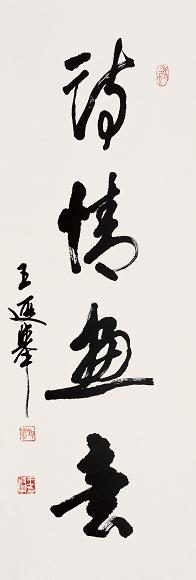 詩情畫意
王遐舉